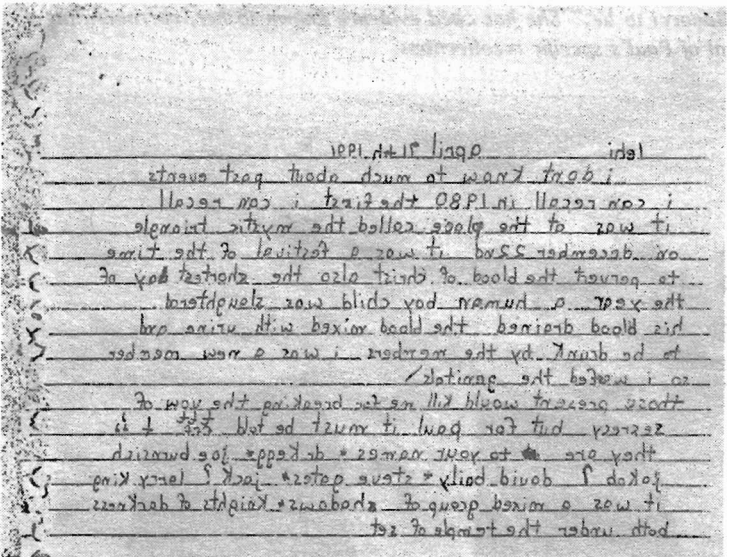 lehi april 21th 1991
i dont know to much about past events
i can recall in 1980 the first i can recall
it was at the place called the mystic triangle
on december 22nd it was a festival of the time
to pervert the blood of christ also the shortest day of
the year a human boy child was slaughterd
his blood drained the blood mixed with urine and
to be drunk by the members i was a new member
so i the
those present would kill me for breaking the vow of
secresy but for paul it must be told
they are to your names * joe
jakob ? david baily * steve gates * jack ? larry king
it was a mixed group of shadows * knights of darkness
both under the temple of set